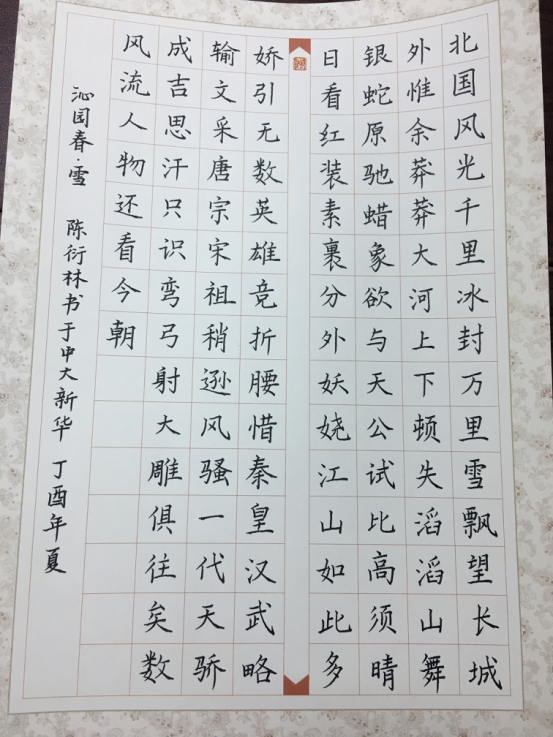 北国风光千里冰封万里雪飘望长城
外惟余莽莽大河上下顿失滔滔山舞
银蛇原驰蜡象欲与天公试比高须晴
日看红装素裹分外妖娆江山如此多
娇引无数英雄竞折腰惜秦皇汉武略
输文采唐宗宋祖稍逊风骚一代天骄
成吉思汗只识弯弓射大雕俱往矣数
风流人物还看今朝
沁园春·雪 陈衍林书于中大新华 丁酉年夏